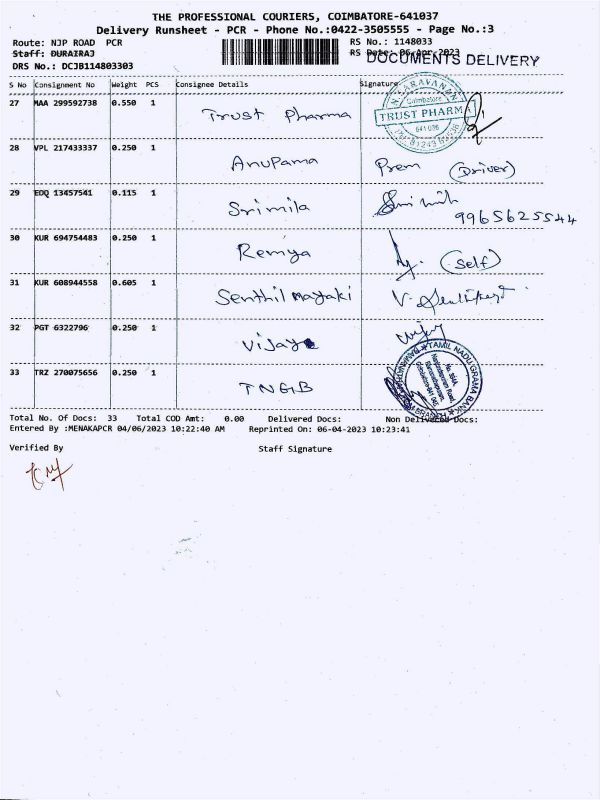 THE PROFESSIONAL COURIERS, COIMBATORE-641037
Delivery Runsheet - PCR - Phone No.:0422-3505555 - Page No.:3
Route: NJP ROAD PCR
RS No.: 1148033
Staff: DURAIRAJ
RS Date: 06-Apr-2023
DOCUMENTS DELIVERY
DRS No.: DCJB114803303
S No Consignment No Weight PCS Consignee Details Signature
27 MAA 299592738 0.550 1 Trust Pharma
SARAVANAN Coimbatore TRUST PHARMA 641 036
28 VPL 217433337 0.250 1 Anupama Prem (Driver)
29 EDQ 13457541 0.115 1 Srimila
9965625544
30 KUR 694754483 0.250 1 Remya (Self)
31 KUR 608944558 0.605 1 Senthil Nayaki
32 PGT 6322796 0.250 1 Vijay
33 TRZ 270075656 0.250 1 TNGB
TAMIL NADU GRAMA BANK
Total No. Of Docs: 33 Total COD Amt: 0.00 Delivered Docs: Non Delivered Docs:
Entered By :MENAKAPCR 04/06/2023 10:22:40 AM Reprinted On: 06-04-2023 10:23:41
Verified By Staff Signature